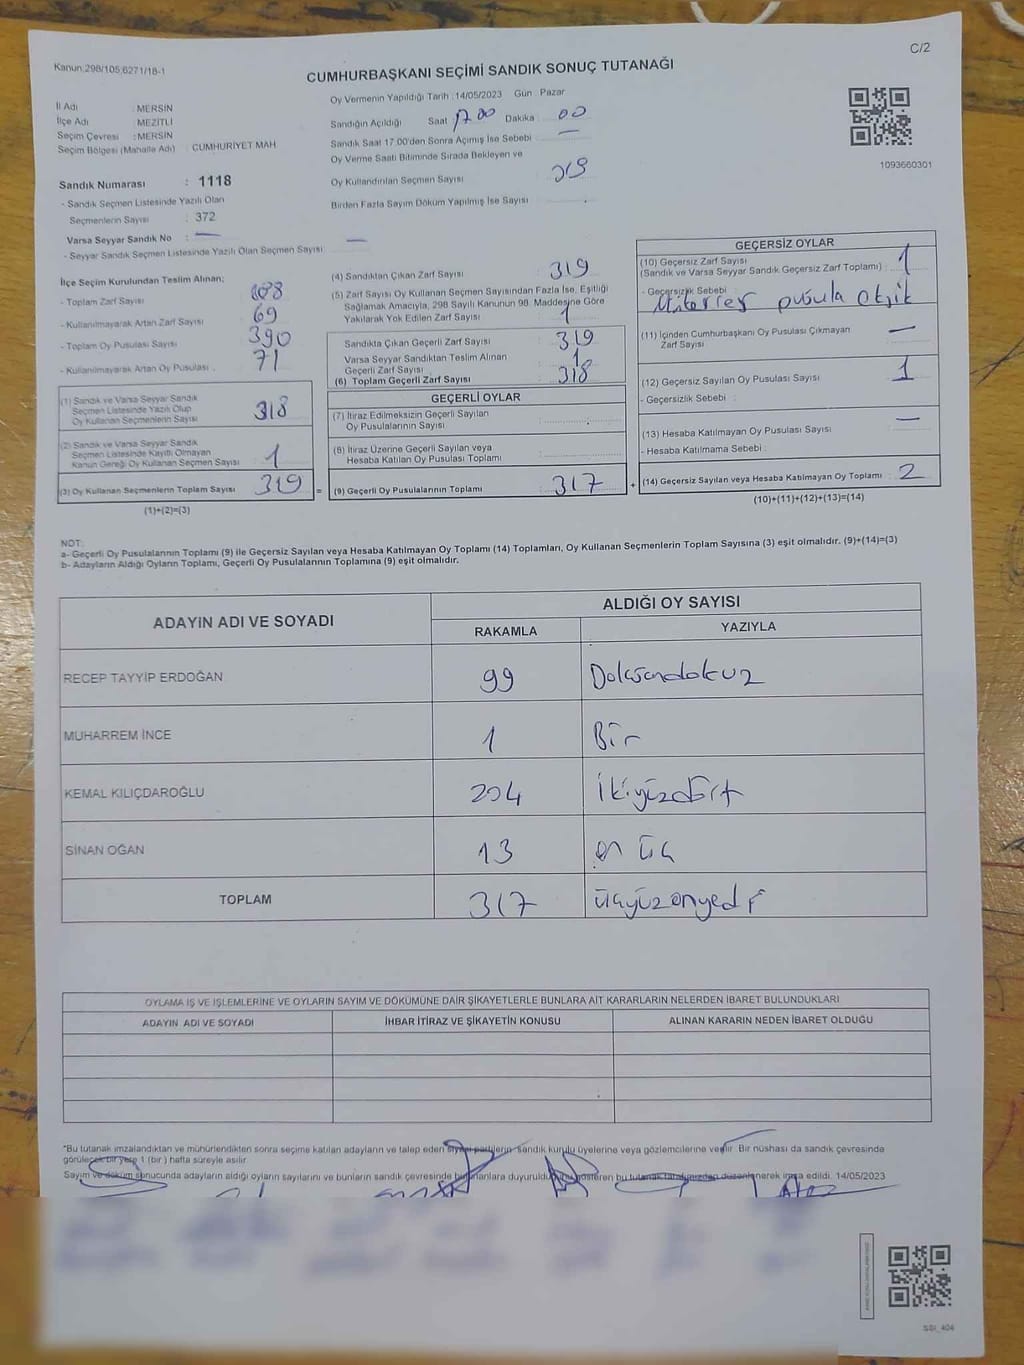 Kanun:298/105,6271/18-1
C/2
CUMHURBAŞKANI SEÇİMİ SANDIK SONUÇ TUTANAĞI
İl Adı : MERSİN
İlçe Adı : MEZİTLİ
Seçim Çevresi : MERSİN
Seçim Bölgesi (Mahalle Adı) : CUMHURİYET MAH
Sandık Numarası : 1118
- Sandık Seçmen Listesinde Yazılı Olan
Seçmenlerin Sayısı : 372
Varsa Seyyar Sandık No : —
- Seyyar Sandık Seçmen Listesinde Yazılı Olan Seçmen Sayısı: —
Oy Vermenin Yapıldığı Tarih :14/05/2023 Gün : Pazar
Sandığın Açıldığı Saat 17.00 Dakika : 00
Sandık Saat 17:00'den Sonra Açımış İse Sebebi : —
Oy Verme Saati Bitiminde Sırada Bekleyen ve
Oy Kullandırılan Seçmen Sayısı : 319
Birden Fazla Sayım Döküm Yapılmış İse Sayısı
1093660301
İlçe Seçim Kurulundan Teslim Alınan;
- Toplam Zarf Sayısı : 388
- Kullanılmayarak Artan Zarf Sayısı : 69
- Toplam Oy Pusulası Sayısı : 390
- Kullanılmayarak Artan Oy Pusulası : 71
(1) Sandık ve Varsa Seyyar Sandık
Seçmen Listesinde Yazılı Olup
Oy Kullanan Seçmenlerin Sayısı : 318
(2) Sandık ve Varsa Seyyar Sandık
Seçmen Listesinde Kayıtlı Olmayan
Kanun Gereği Oy Kullanan Seçmen Sayısı : 1
(3) Oy Kullanan Seçmenlerin Toplam Sayısı : 319 =
(1)+(2)=(3)
(4) Sandıktan Çıkan Zarf Sayısı : 319
(5) Zarf Sayısı Oy Kullanan Seçmen Sayısından Fazla İse, Eşitliği
Sağlamak Amacıyla, 298 Sayılı Kanunun 98. Maddesine Göre
Yakılarak Yok Edilen Zarf Sayısı : 1
Sandıkta Çıkan Geçerli Zarf Sayısı : 319
Varsa Seyyar Sandıktan Teslim Alınan
Geçerli Zarf Sayısı : 1
(6) Toplam Geçerli Zarf Sayısı : 318
GEÇERLİ OYLAR
(7) İtiraz Edilmeksizin Geçerli Sayılan
Oy Pusulalarının Sayısı :
(8) İtiraz Üzerine Geçerli Sayılan veya
Hesaba Katılan Oy Pusulası Toplamı :
(9) Geçerli Oy Pusulalarının Toplamı : 317 +
GEÇERSİZ OYLAR
(10) Geçersiz Zarf Sayısı
(Sandık ve Varsa Seyyar Sandık Geçersiz Zarf Toplamı) : 1
- Geçersizlik Sebebi : pusula
(11) İçinden Cumhurbaşkanı Oy Pusulası Çıkmayan
Zarf Sayısı : —
(12) Geçersiz Sayılan Oy Pusulası Sayısı : 1
- Geçersizlik Sebebi :
(13) Hesaba Katılmayan Oy Pusulası Sayısı : —
- Hesaba Katılmama Sebebi :
(14) Geçersiz Sayılan veya Hesaba Katılmayan Oy Toplamı : 2
(10)+(11)+(12)+(13)=(14)
NOT:
a- Geçerli Oy Pusulalarının Toplamı (9) ile Geçersiz Sayılan veya Hesaba Katılmayan Oy Toplamı (14) Toplamları, Oy Kullanan Seçmenlerin Toplam Sayısına (3) eşit olmalıdır. (9)+(14)=(3)
b- Adayların Aldığı Oyların Toplamı, Geçerli Oy Pusulalarının Toplamına (9) eşit olmalıdır.
ADAYIN ADI VE SOYADI
ALDIĞI OY SAYISI
RAKAMLA YAZIYLA
RECEP TAYYİP ERDOĞAN 99 Doksandokuz
MUHARREM İNCE 1 Bir
KEMAL KILIÇDAROĞLU 204 İkiyüzdört
SİNAN OĞAN 13 on üç
TOPLAM 317 üçyüzonyedi
OYLAMA İŞ VE İŞLEMLERİNE VE OYLARIN SAYIM VE DÖKÜMÜNE DAİR ŞİKAYETLERLE BUNLARA AİT KARARLARIN NELERDEN İBARET BULUNDUKLARI
ADAYIN ADI VE SOYADI İHBAR İTİRAZ VE ŞİKAYETİN KONUSU ALINAN KARARIN NEDEN İBARET OLDUĞU
*Bu tutanak imzalandıktan ve mühürlendikten sonra seçime katılan adayların ve talep eden siyasi partilerin, sandık kurulu üyelerine veya gözlemcilerine verilir. Bir nüshası da sandık çevresinde
görülecek bir yere 1 (bir) hafta süreyle asılır.
Sayım ve döküm sonucunda adayların aldığı oyların sayılarını ve bunların sandık çevresinde bulunanlara duyurulduğunu gösteren bu tutanak tarafımızdan düzenlenerek imza edildi. 14/05/2023
SSI_404